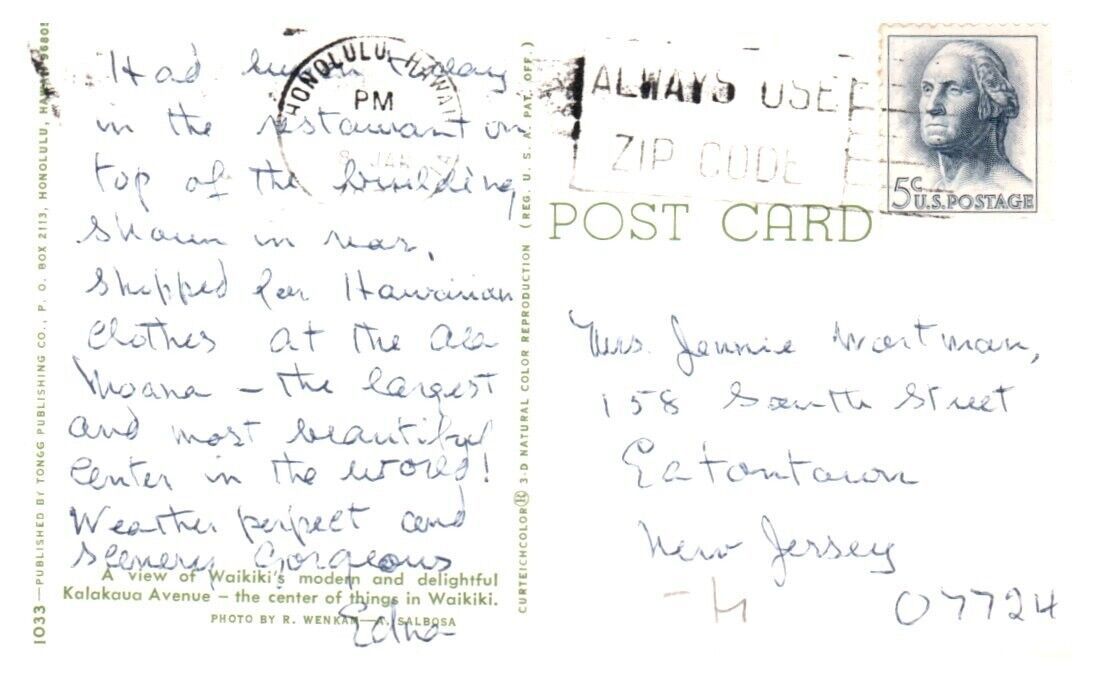 Had lunch today
in the restaurant on
top of the building
shown in rear,
shopped for Hawaiian
clothes at the Ala
Moana – the largest
and most beautiful
center in the world!
Weather perfect and
scenery gorgeous
Edna
A view of Waikiki's modern and delightful
Kalakaua Avenue – the center of things in Waikiki.
PHOTO BY R. WENKAM—A. SALBOSA
1033—PUBLISHED BY TONGG PUBLISHING CO., P. O. BOX 2113, HONOLULU, HAWAII 96805
CURTEICHCOLOR® 3-D NATURAL COLOR REPRODUCTION (REG. U. S. A. PAT. OFF.)
HONOLULU, HAWAII
PM
8 JAN
ALWAYS USE
ZIP CODE
5¢
U.S. POSTAGE
POST CARD
Mrs. Jennie Wortman,
158 South Street
Eatontown
New Jersey
07724